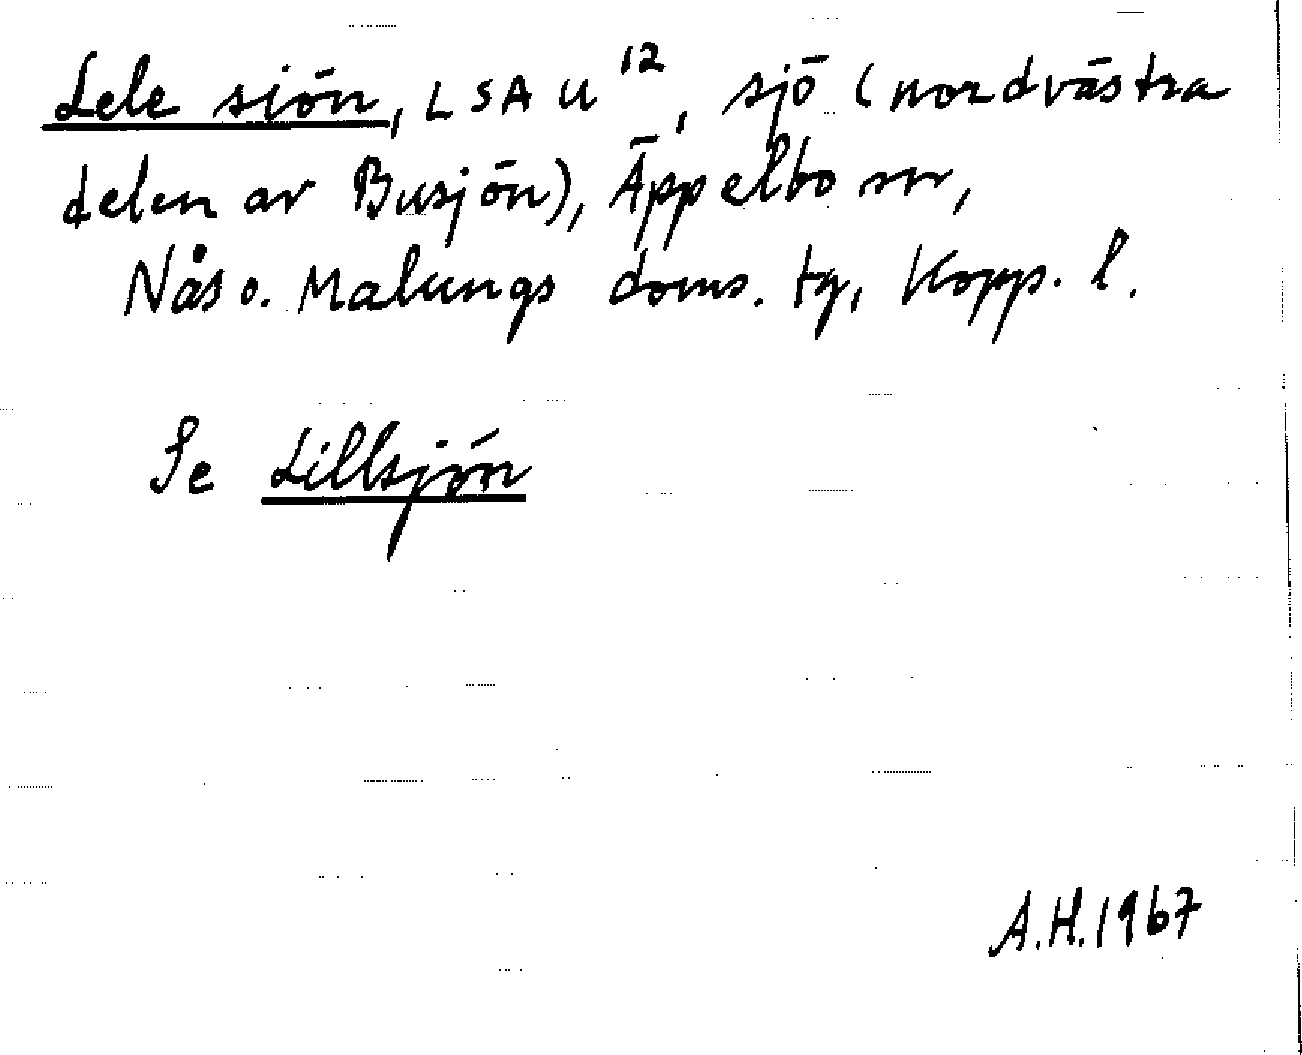 Lele siön, LSA U¹², sjö (nordvästra
delen av Busjön), Äppelbo sn,
Nås o. Malungs doms. tg, Kopp. l.
Se Lillsjön
A.H. 1967